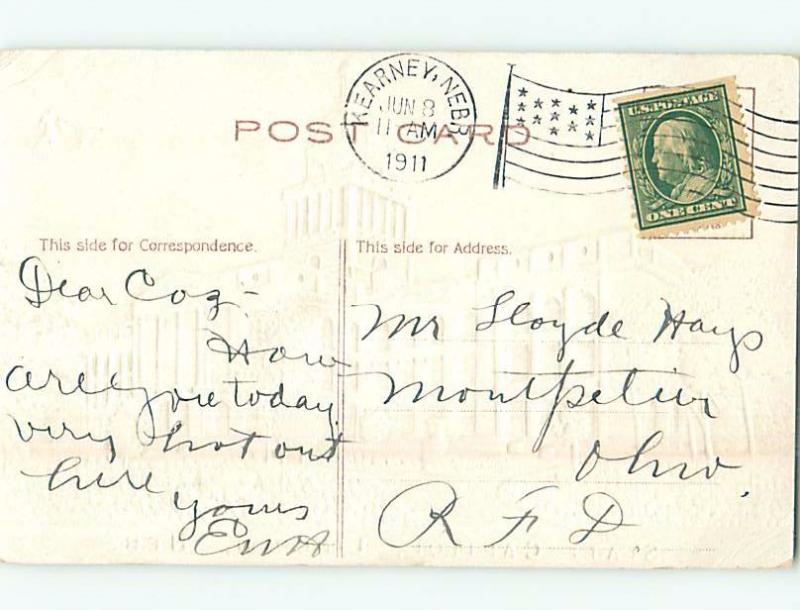 KEARNEY, NEBR
JUN 8
11 AM
1911
POST CARD
U.S. POSTAGE
ONE CENT
This side for Correspondence.
This side for Address.
Dear Coz-
How
are you today
very hot out
here
yours
Mr Lloyde Hays
Montpelier
Ohio,
R F D